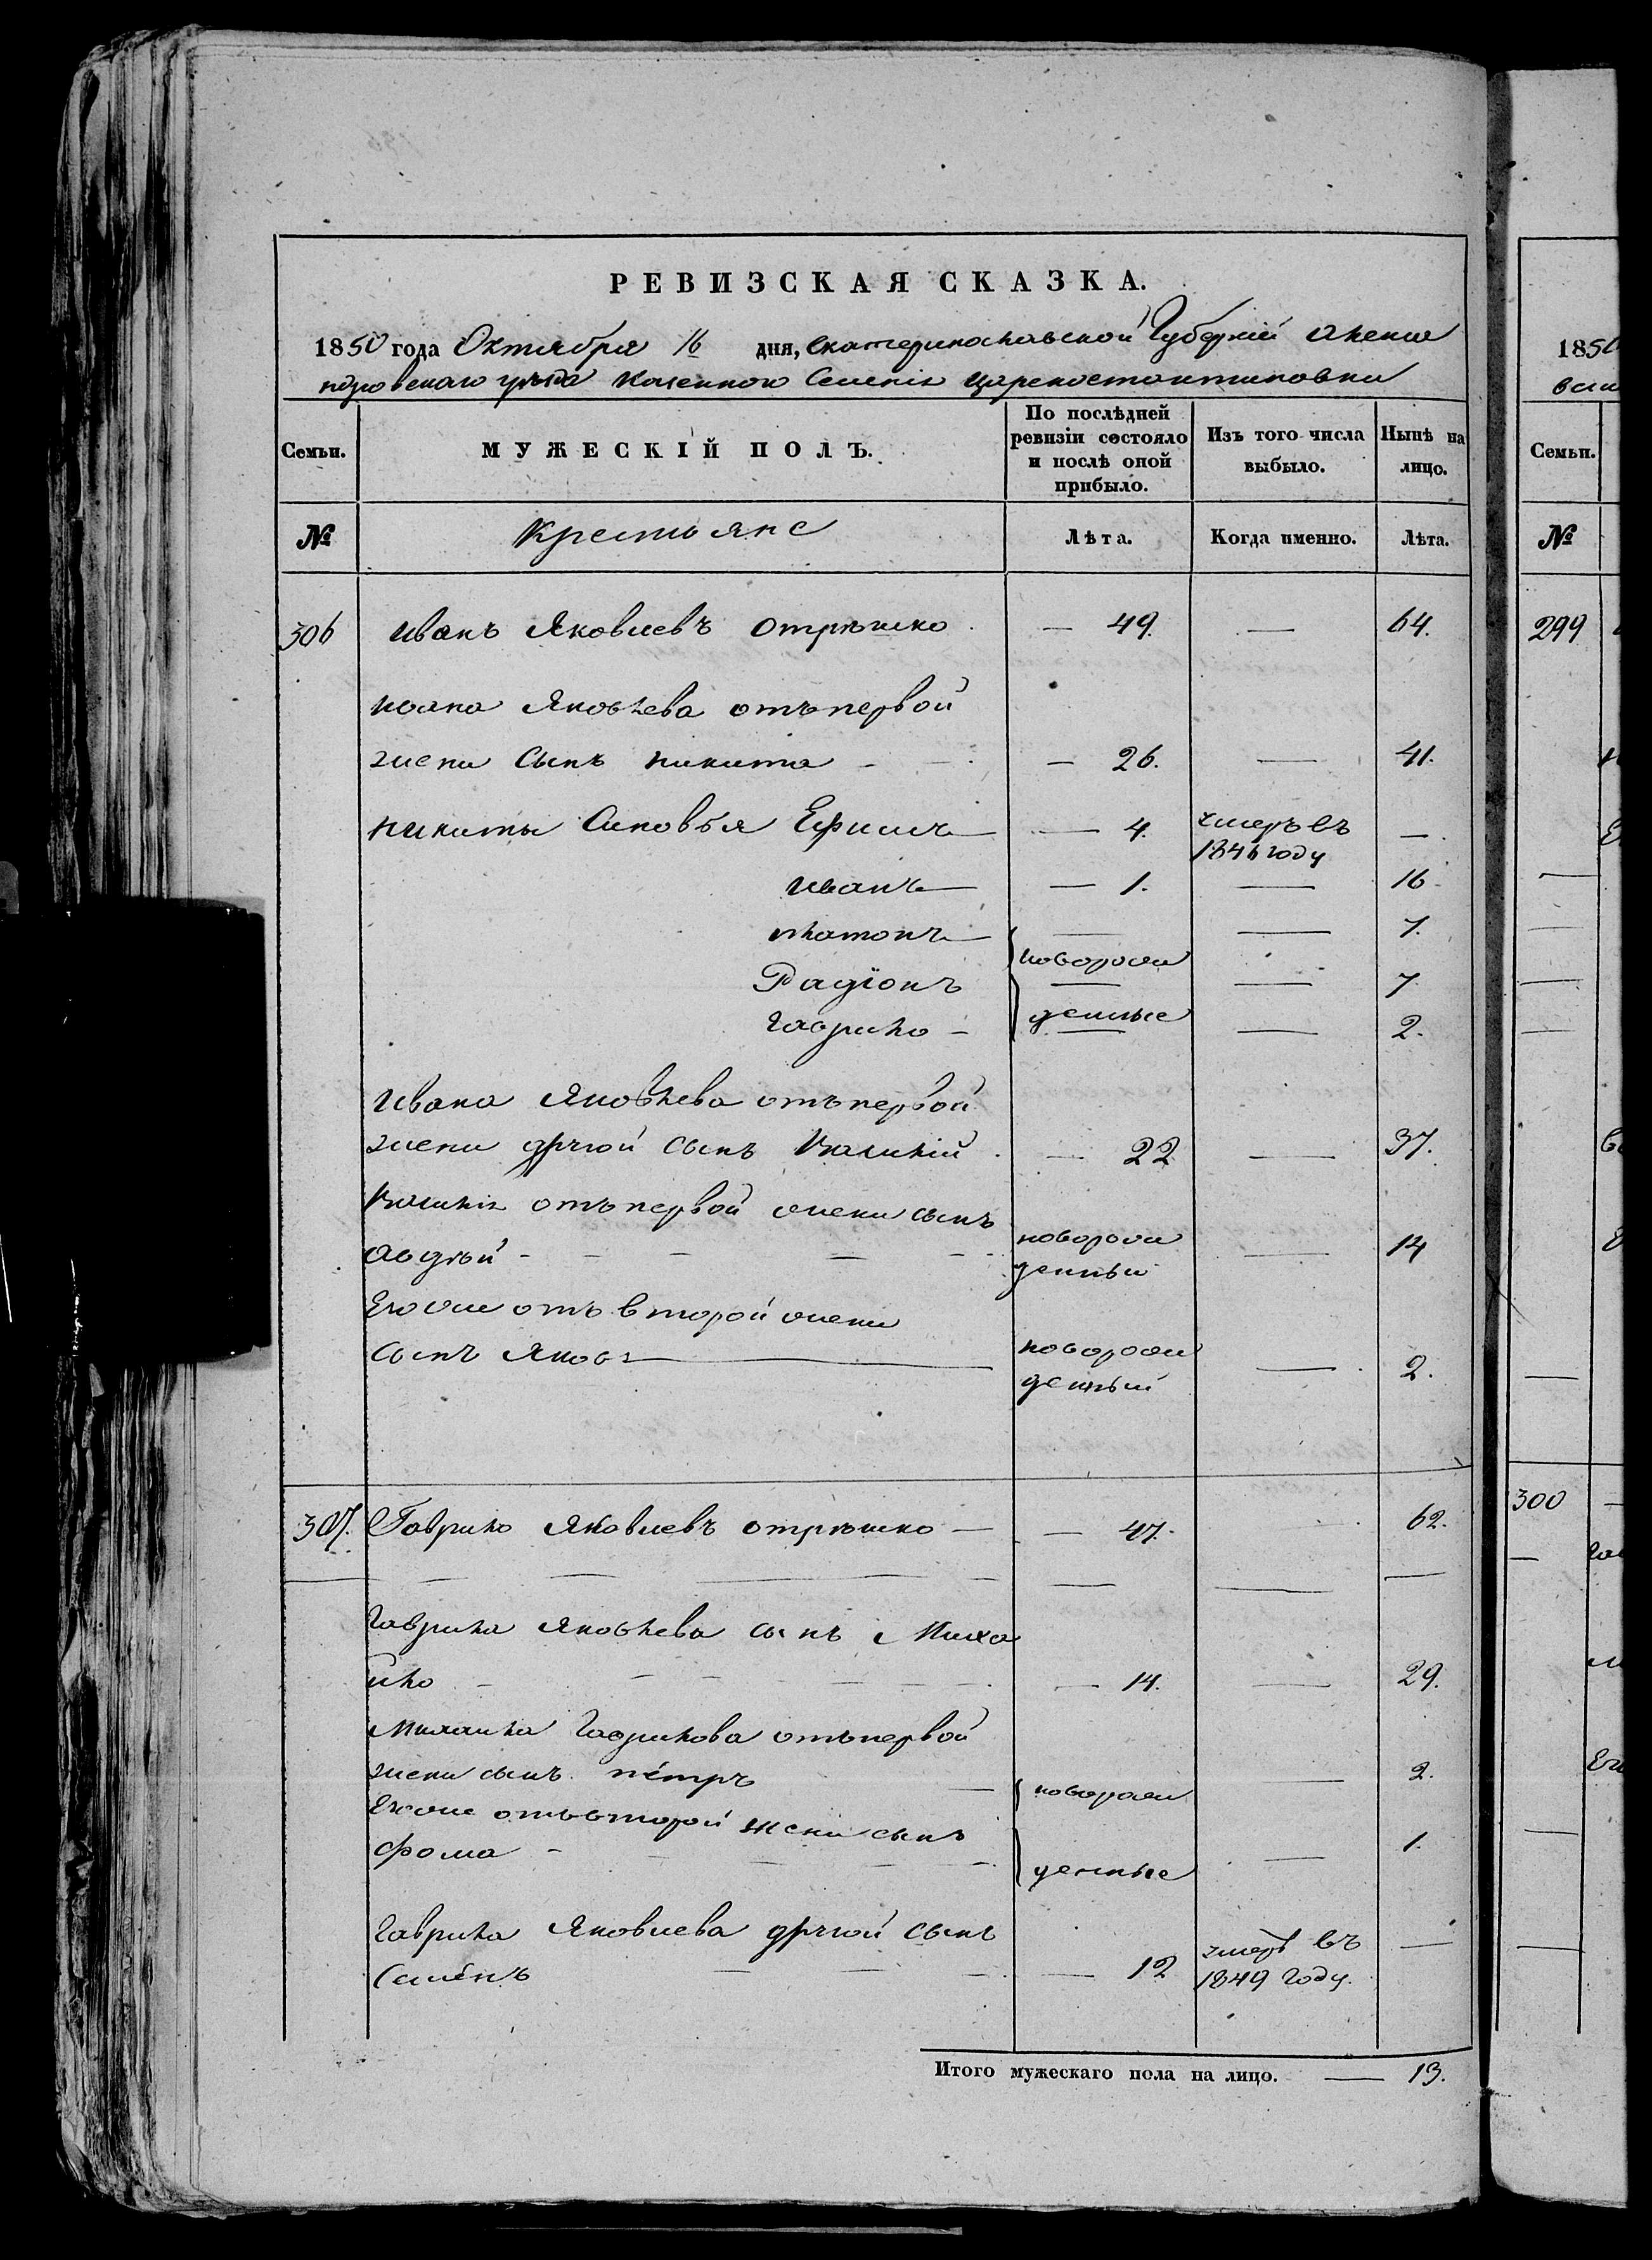 РЕВИЗСКАЯ СКАЗКА.
1850 года Октября 16 дня, екатеринославской Губернии Алекса
ндровскаго уезда Казенного Селения Цареконстантиновки
Семьи.
МУЖЕСКІЙ ПОЛЪ.
По послѣдней ревизіи состояло и послѣ оной прибыло.
Изъ того числа выбыло.
Нынѣ на лицо.
№
Крестьяне
Лѣта.
Когда именно.
Лѣта.
306 Иванъ Яковлевъ Отрешко — 49. — 64.
Ивана Яковлева отъ первой
жени сынъ Никита — 26. — 41.
Никиты Синовья Ефимъ — 4. умеръ въ 1846 году —
Иванъ — 1. — 16
Платонъ — новорож — 7.
Радіонъ — — 7.
Гаврило — денные — 2.
Ивана Яковлева отъ первой
жени другой сынъ — 22 — 37.
отъ первой жени сынъ
Авдѣй - новорож денный — 14
Егоже отъ второй жени
сынъ Яковъ — новорож денный — 2.
307. Гаврило Яковлевъ отрешко — 47. 62.
Гаврила Яковлева сынъ Миха
йло — 14. — 29.
Михаила Гаврилова отъ первой
жени сынъ пётръ — новорож — 2.
Егоже отъ второй жени сынъ
фома - денные — 1.
Гаврила Яковлева другой сынъ
Семёнъ — 12 умеръ въ 1849 году. —
Итого мужескаго пола на лицо. — 13.
1850
Семьи.
№
299
300